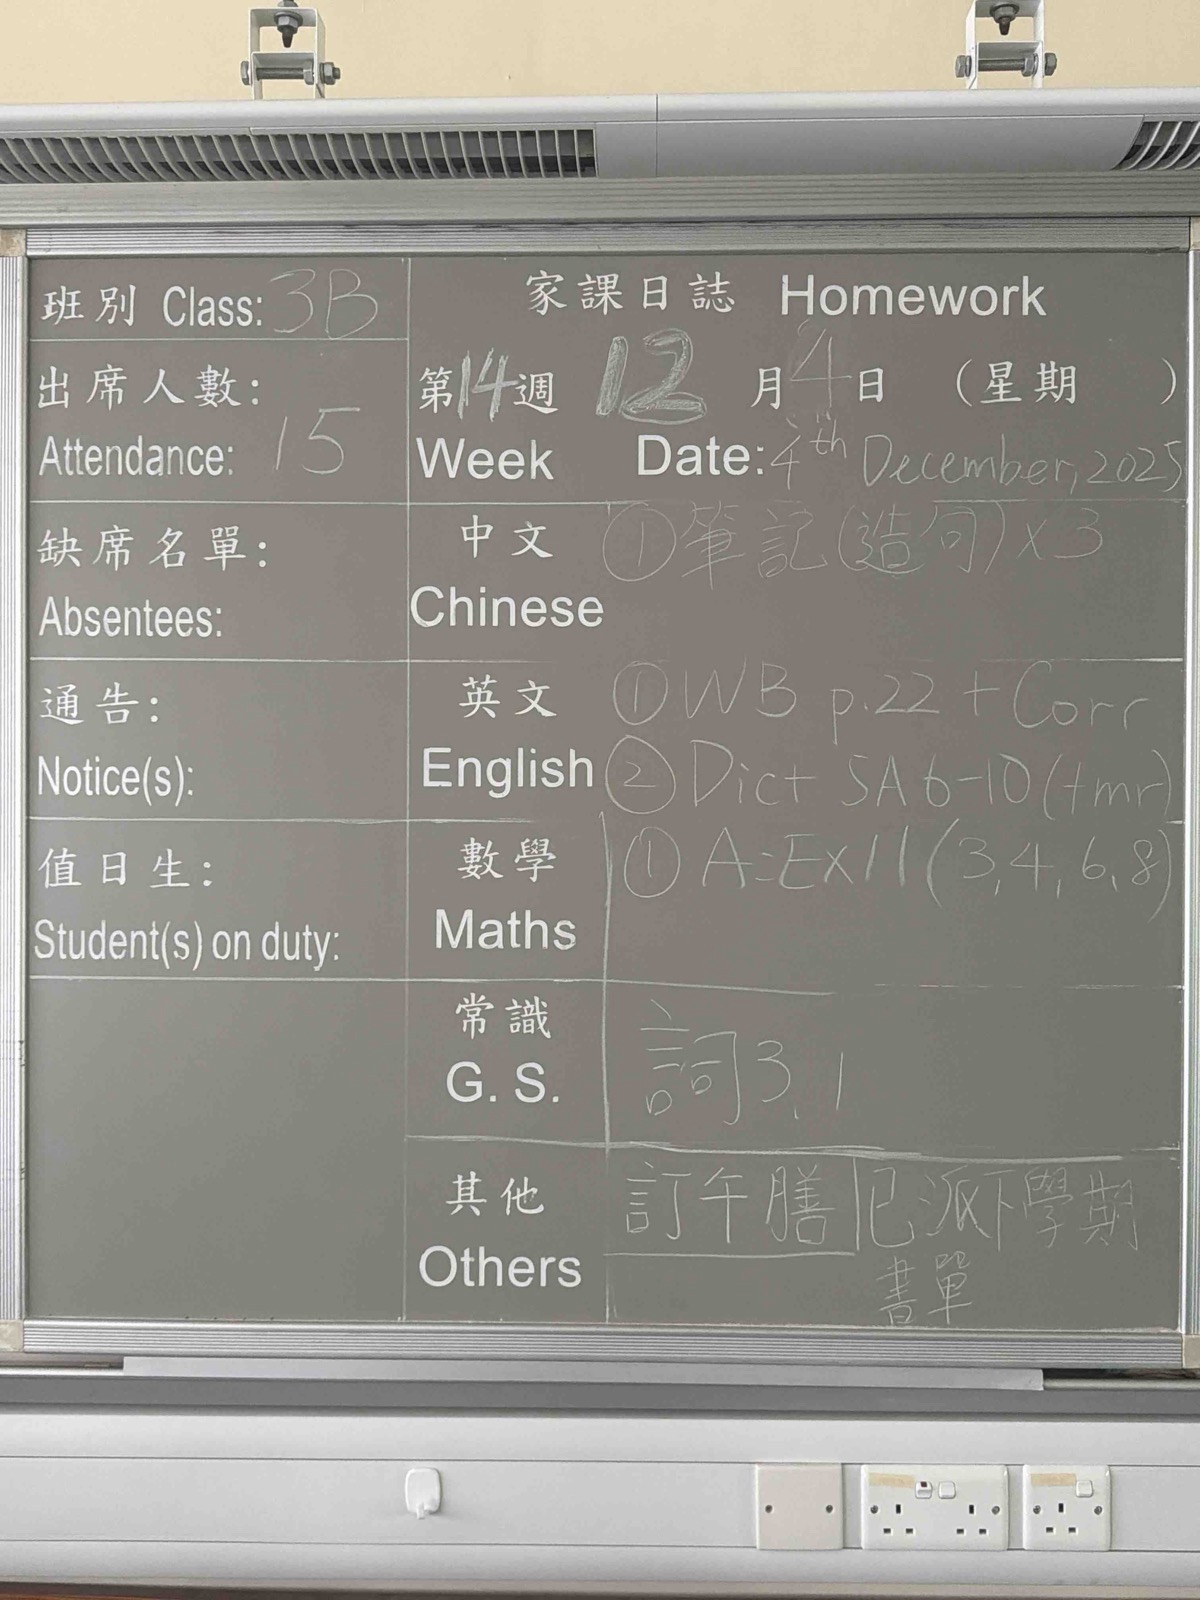 班別 Class: 3B
出席人數:
Attendance: 15
缺席名單:
Absentees:
通告:
Notice(s):
值日生:
Student(s) on duty:
家課日誌 Homework
第14週 12月4日 (星期 )
Week Date: 4th December, 2025
中文 ①筆記(造句)x3
Chinese
英文 ①WB p.22 + Corr
English ②Dict SA 6-10 (tmr)
數學 ① A:Ex11 (3,4,6,8)
Maths
常識
G. S. 詞3.1
其他 訂午膳 已派下學期
Others 書單